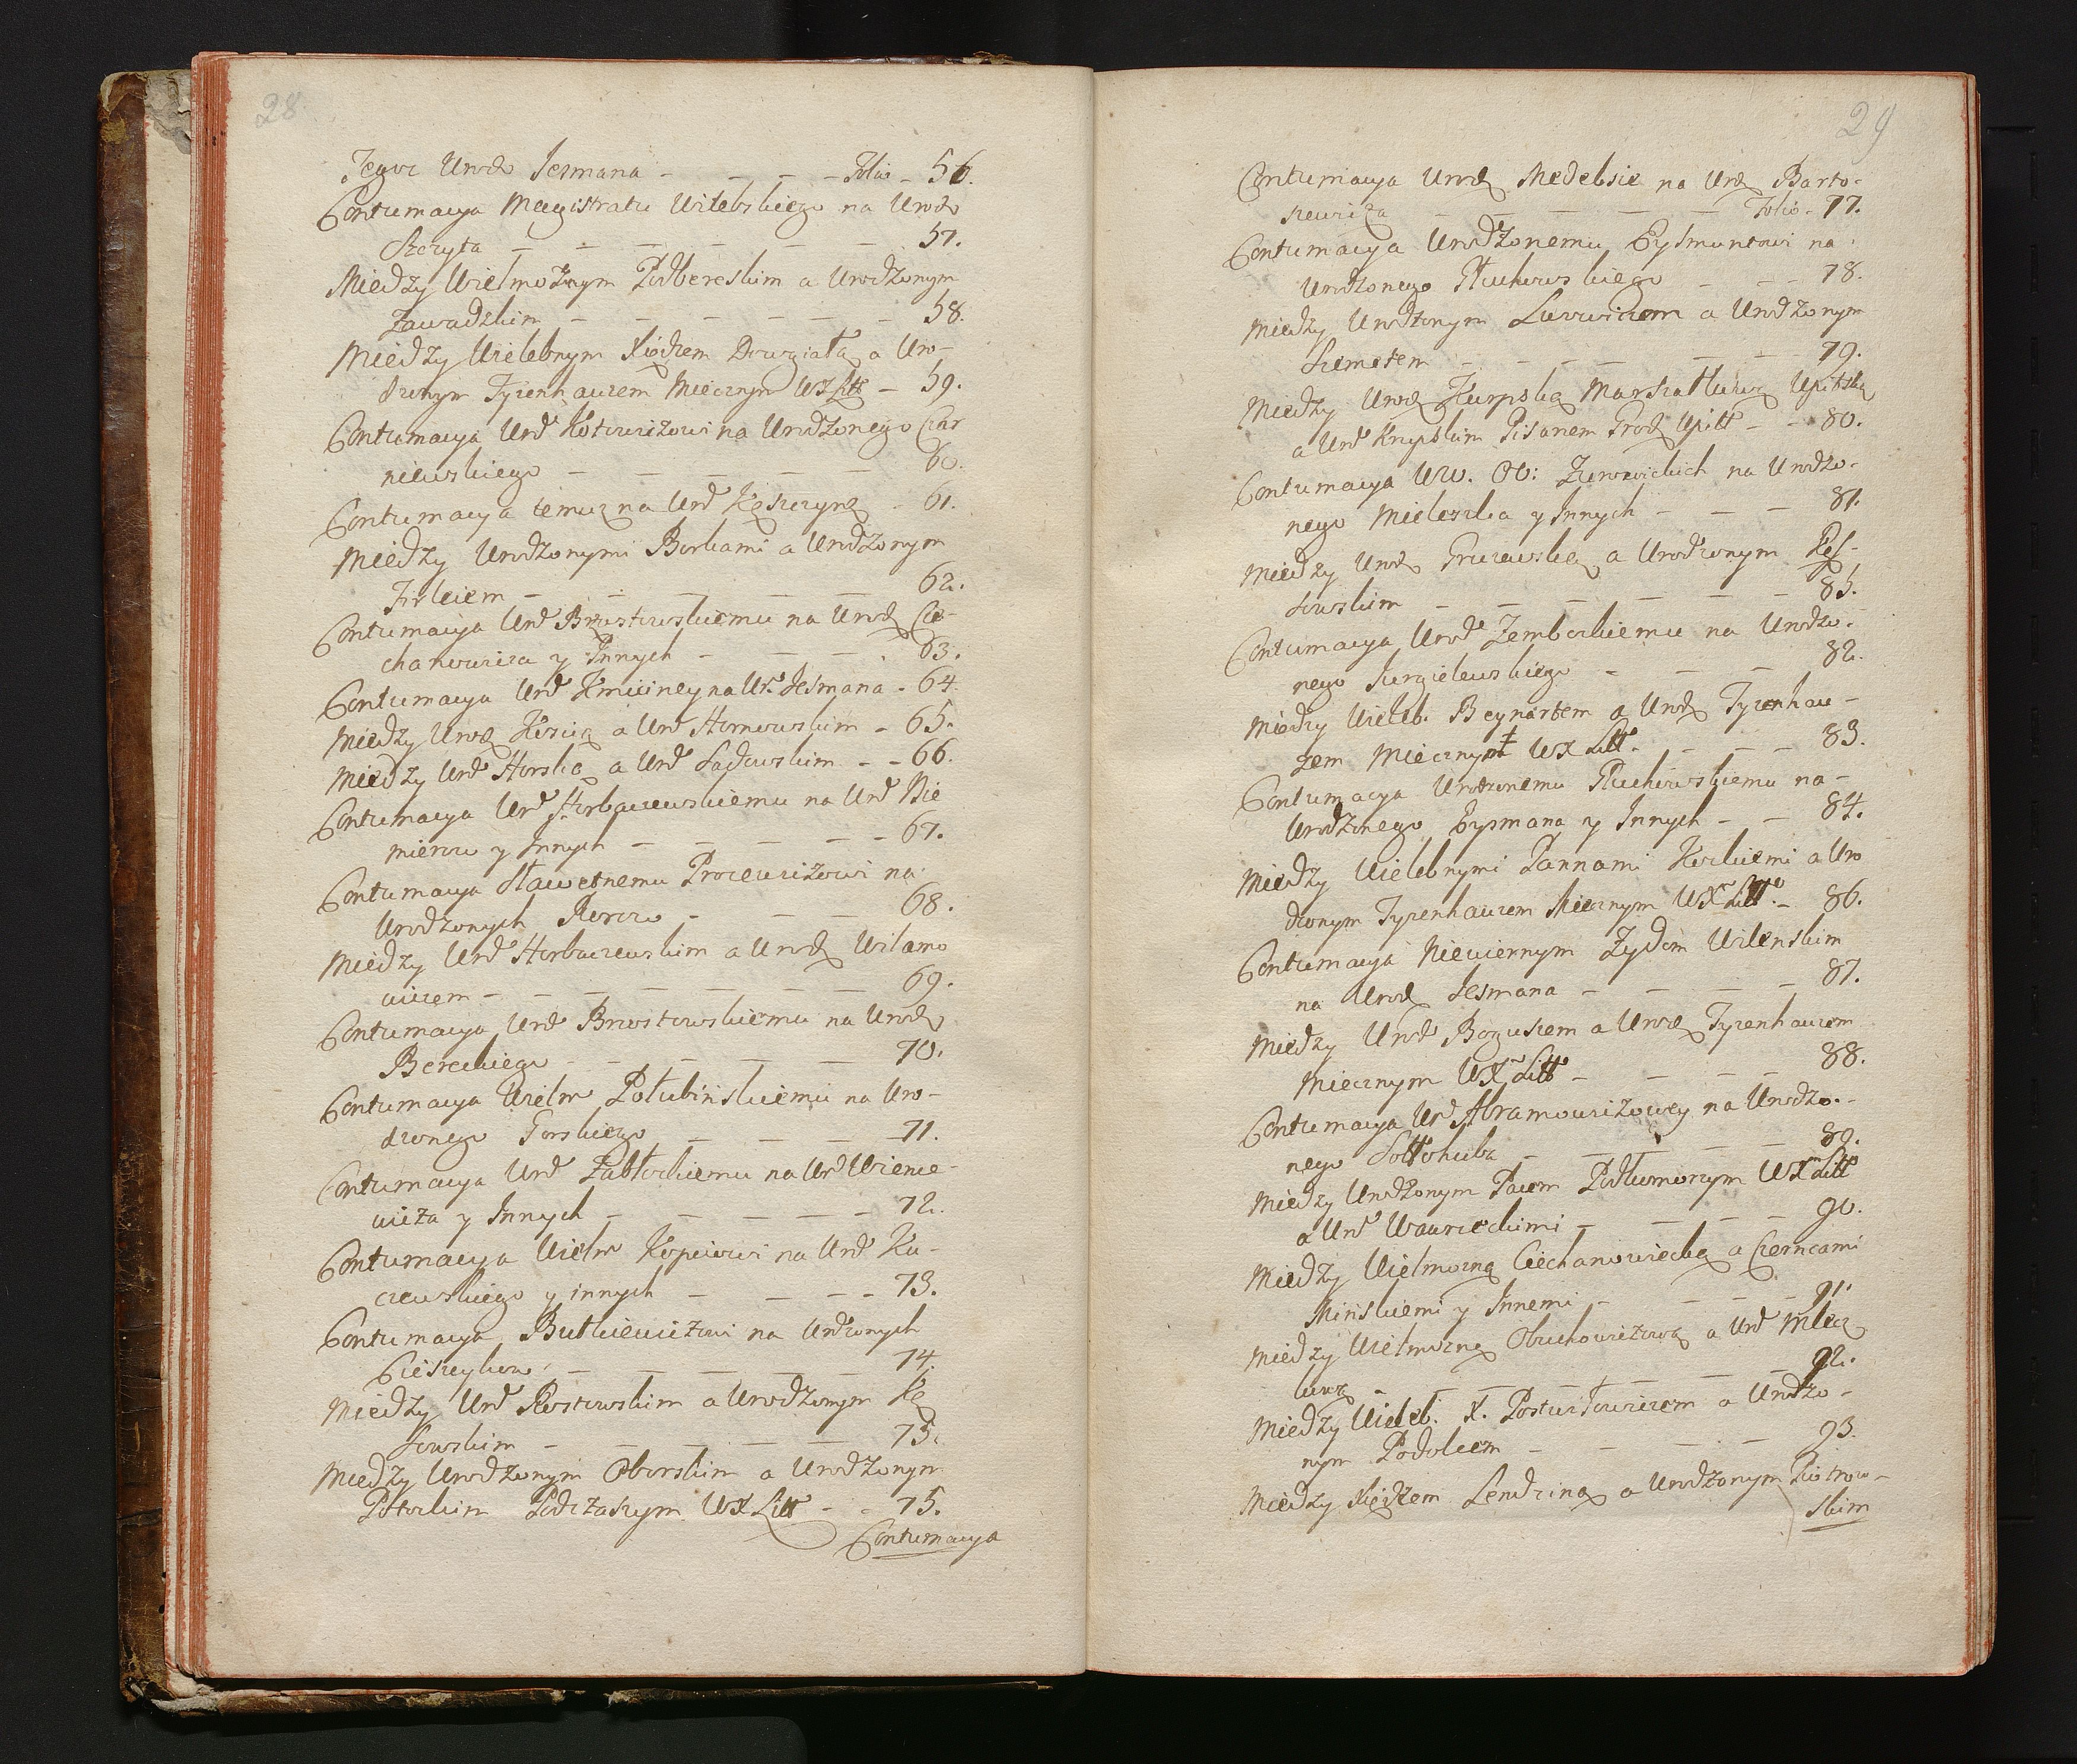 28.
Tegoż Urodz Jesmana - - - - Folio - 56.
Contumacya Magistratu Witebskiego na Urodz
Szczyta - - - - - - - 57.
Między Wielmożnym Podbereskim a Urodzonym
Zawadzkim - - - - - - - 58.
Między Wielebnym Xiędzem Dowgiałą a Uro-
dzonym Tyzenhauzem Miecznym WXLitt - 59.
Contumacya Urd Kotowiczowi na Urodzonego Czar
niewskiego - - - - - - 60.
Contumacya temuż na Urd - 61.
Między Urodzonymi Borkami a Urodzonym
Firleiem - - - - - - 62.
Contumacya Urd Brzostowskiemu na Urodz Cie-
chanowicza y Innych - - - - 63.
Contumacya Urd Kmiciney na Ur. Jesmana - 64.
Między Urodz a Urd Hornowskim - 65.
Między Urd Horską a Urd Sadowskim - - 66.
Contumacya Urd Horbaczewskiemu na Urd Nie
mierow y Innych - - - - - 67.
Contumacya Sławetnemu Procewiczowi na
Urodzonych - - - - 68.
Między Urd Horbaczewskim a Urodz Wilamo
wiczem - - - - - - - 69.
Contumacya Urd Brzostowskiemu na Urodz
Bereckiego - - - - - - 70.
Contumacya Wielm Połubińskiemu na Uro-
dzonego Gorskiego - - - - 71.
Contumacya Urd Zabłockiemu na Urd Wience-
wicza y Innych - - - - - 72.
Contumacya Wielm Kopciowi na Urd Ka-
czewskiego y innych - - - - 73.
Contumacya Butkiewiczowi na Urdzonych
Cieszeykow - - - - - - 74.
Między Urd Rostowskim a Urodzonym Kę
sowskim - - - - - - 75.
Między Urodzonym Oborskim a Urodzonym
Potockim Podczaszym WXLitt - - 75.
Contumacya
29
Contumacya Urodz Medekszie na Urdz Barto-
szewicza - - - - - - Folio - 77.
Contumacya Urodzonemu Eysmuntowi na
Urodzonego Pluchowskiego - - - 78.
Między Urodzonym Ławrowiczem a Urodzonym
Szemetem - - - - - - 79.
Między Urodz Karpską Marszałkową Upitską
a Urd Knypskim Pisarzem Grodz Upitt - - 80.
Contumacya UW. OO: Zurowickich na Urodzo-
nego Mieleszka y Innych - - - 81.
Między Urodz Gruzewską a Urodzonym Kęs-
sowskim - - - - - - - 85.
Contumacya Urod Zembockiemu na Urodzo-
nego Jurgielewskiego - - - 82.
Między Wieleb. Beynartem a Urodz Tyzenhau-
zem Miecznym WXLitt - - - - 83.
Contumacya Urodzonemu Pluchowskiemu na -
Urodzonego Eysmana y Innych - - 84.
Między Wielebnymi Pannami Kockiemi a Uro
dzonym Tyzenhauzem Miecznym WX Litt - 86.
Contumacya Niewiernym Zydom Wilenskim
na Urodz Jesmana - - - - - 87.
Między Urod Boguszem a Urodz Tyzenhauzem
Miecznym WX Litt - - - - 88.
Contumacya Ur Abramowiczowey na Urodzo-
nego Sołłohuba - - - - - 89.
Między Urodzonym Pacem Podkomorzym WX Litt
a Urd Wawrzeckimi - - - - 90.
Między Wielmożną Ciechanowiecką a Czerncami
Mińskiemi y Innemi - - - - 91.
Między Wielmożną Obuchowiczową a Urd Mlecz
kową - - - - - - 92.
Między Wieleb. X. a Urodzo-
nym Podolcem - - - - - 93.
Między Xiędzem Lendziną a Urodzonym Piotrow-
skim